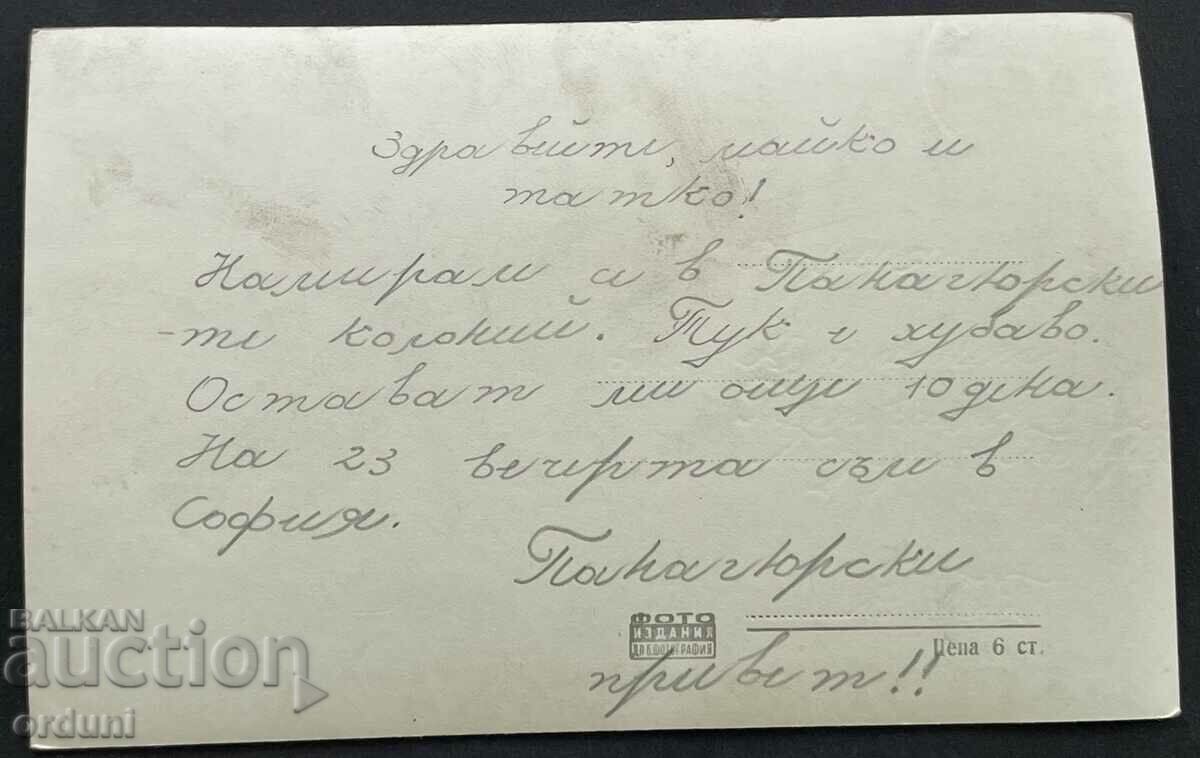 Здравейте, майко и
татко!
Намирам се в Панагюрски
-те колоний. Тук е хубаво.
Остават ми още 10 дена.
На 23 вечерта съм в
София.
Панагюрски
ФОТО
ИЗДАНИЯ
ДП БЪЛГ. ФОТОГРАФИЯ
Цена 6 ст.
привет!!
BALKAN
auction
orduni